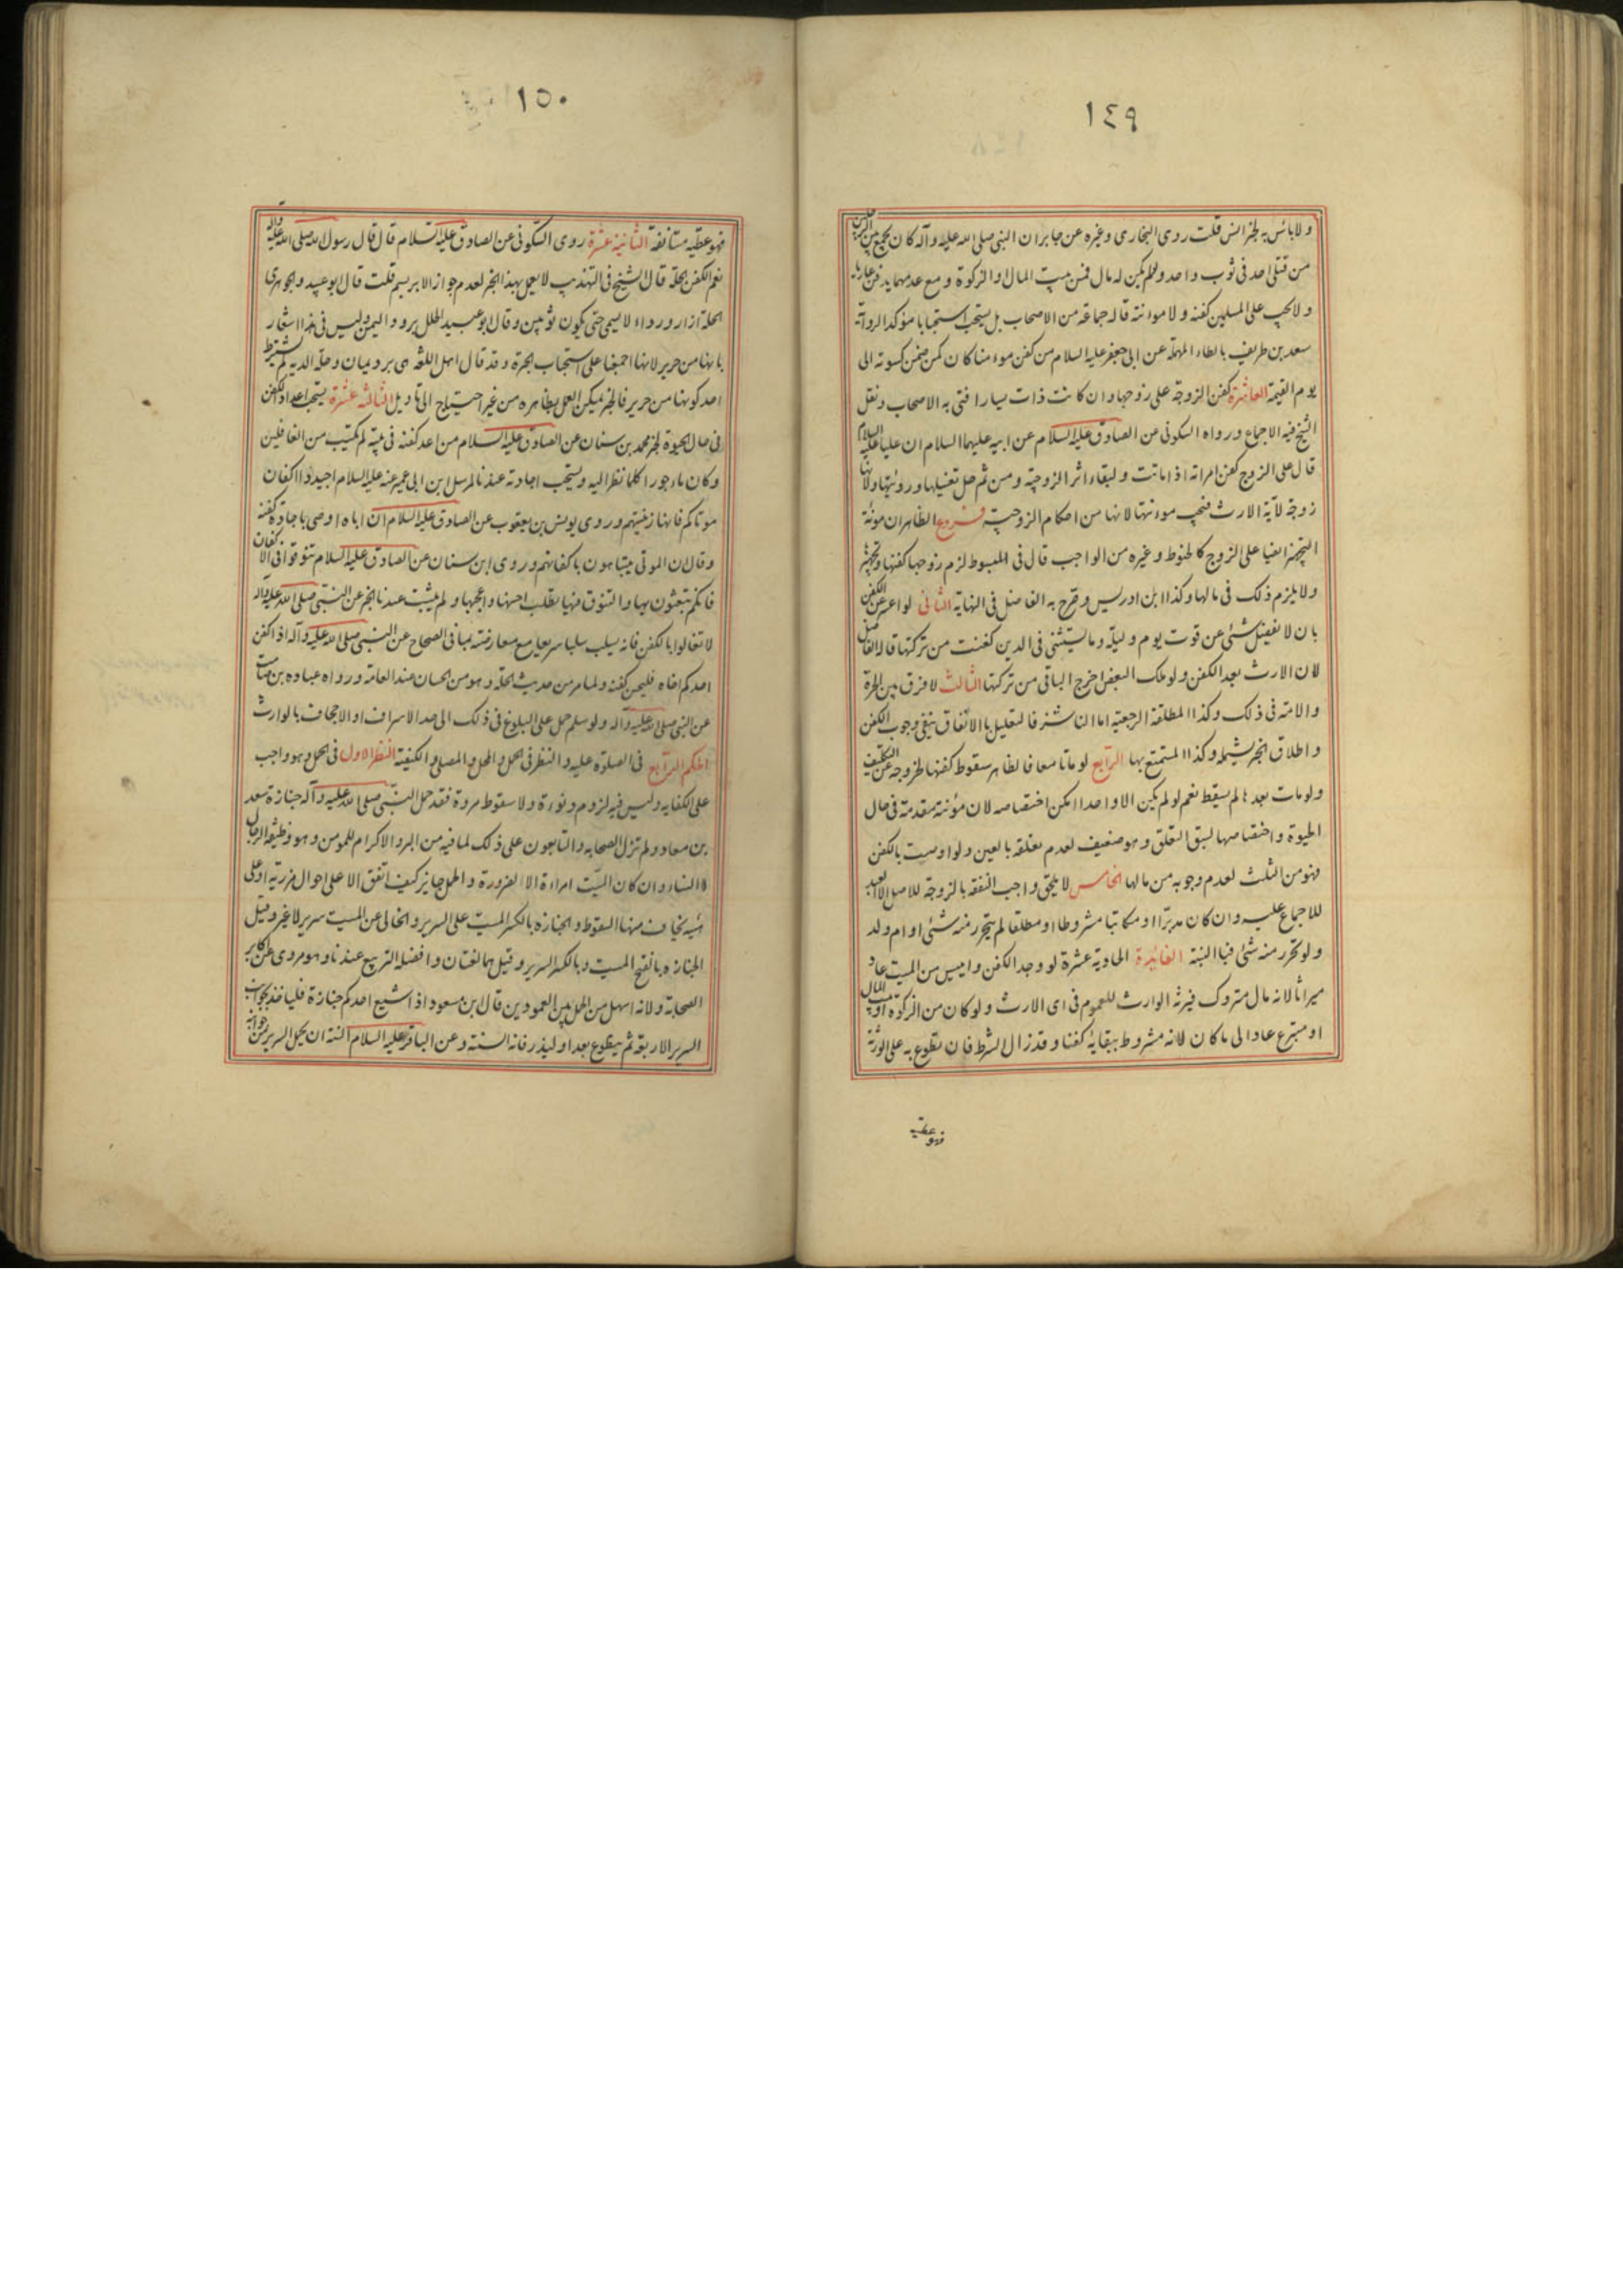 ١٤٩
ولا باس به لخبر انس قلت روى البخارى وغيره عن جابر ان النبى صلى الله عليه وآله كان يجمع بين الرجلين
من قتلى احد فى ثوب واحد ولو لم يكن له مال فمن بيت المال او الزكوة ومع عدمهما يدفن عاريا
ولا يجب على المسلمين كفنه ولا موانته قاله جماعة من الاصحاب بل يستحب استحبابا مؤكدا لرواية
سعد بن طريف بالطاء المهملة عن ابى جعفر عليه السلام من كفن مومنا كان كمن ضمن كسوته الى
يوم القيمة العاشرة كفن الزوجة على زوجها وان كانت ذات يسار افتى به الاصحاب ونقل
الشيخ فيه الاجماع ورواه السكونى عن الصادق عليه السلام عن ابيه عليهما السلام ان عليا عليه السلام
قال على الزوج كفن امراته اذا ماتت ولبقاء اثر الزوجية ومن ثم حل تغسيلها ورويتها ولانها
زوجة لآية الارث فتجب موانتها لانها من احكام الزوجية فروع الظاهر ان مونة
التجهيز ايضا على الزوج كالحنوط وغيره من الواجب قال فى المبسوط لزم زوجها كفنها وتجهيزها
ولا يلزم ذلك فى مالها وكذا ابن ادريس وصرح به الفاضل فى النهاية الثانى لو اعسر عن الكفن
بان لا يفضل شئ عن قوت يوم وليلة وما يستثنى فى الدين كفنت من تركتها قاله الفاضل
لان الارث بعد الكفن ولو ملك البعض اخرج الباقى من تركتها الثالث لا فرق بين الحرة
والامة فى ذلك وكذا المطلقة الرجعية اما الناشز فالتعليل بالانفاق ينفى وجوب الكفن
واطلاق الخبر يشمله وكذا المستمتع بها الرابع لو ماتا معا فالظاهر سقوط كفنها لخروجه عن التكليف
ولو مات بعدها لم يسقط نعم لو لم يكن الا واحدا امكن اختصاصه لان مؤنته مقدمة فى حال
الحيوة واختصاصها لسبق التعلق وهو ضعيف لعدم تعلقه بالعين ولو اوصت بالكفن
فهو من الثلث لعدم وجوبه من مالها الخامس لا يلحق واجب النفقة بالزوجة للاصل الا العبد
للاجماع عليه وان كان مدبرا او مكاتبا مشروطا او مطلقا لم يتحرر منه شئ او ام ولد
ولو تحرر منه شئ فبالنسبة الفائدة الحادية عشرة لو وجد الكفن وايس من الميت عاد
ميراثا لانه مال متروك فيرثه الوارث للعموم فى اى الارث ولو كان من الزكوة او بيت المال
او متبرع عاد الى ما كان لانه مشروط ببقائه كفنا وقد زال الشرط فان تطوع به على الورثة
فهو عطية
١٥٠
فهو عطية مستانفة الثانية عشرة روى السكونى عن الصادق عليه السلام قال قال رسول الله صلى الله عليه وآله
نعم الكفن الحلة قال الشيخ فى التهذيب لا يعمل بهذا الخبر لعدم جواز الابريسم قلت قال ابو عبيد والجوهرى
الحلة ازار ورداء لا يسمى حتى يكون ثوبين وقال ابو عبيد الحلل برود اليمن وليس فى هذا اشعار
بانها من حرير لانها اجمعنا على استحباب الحبرة وقد قال اهل اللغة هى برد يمان وحلة الدية لم يشترط
احد كونها من حرير فالخبر يمكن العمل بظاهره من غير احتياج الى تاويل الثالثة عشرة يستحب اعداد الكفن
فى حال الحيوة لخبر محمد بن سنان عن الصادق عليه السلام من اعد كفنه فى بيته لم يكتب من الغافلين
وكان ماجورا كلما نظر اليه ويستحب اجادته عندنا لمرسل ابن ابى عمير عنه عليه السلام اجيدوا اكفان
موتاكم فانها زينتهم وروى يونس بن يعقوب عن الصادق عليه السلام ان اباه اوصى باجادة كفنه
وقال ان الموتى يتباهون باكفانهم وروى ابن سنان عن الصادق عليه السلام تنوقوا فى الاكفان
فانكم تبعثون بها والتنوق فيها يطلب احسنها واعجبها ولم يثبت عندنا الخبر عن النبى صلى الله عليه وآله
لا تغالوا بالكفن فانه يسلب سلبا سريعا مع معارضته بما فى الصحاح عن النبى صلى الله عليه وآله اذا كفن
احدكم اخاه فليحسن كفنه ولما مر من حديث الحلة وهو من الحسان عند العامة ورواه عباده بن صامت
عن النبى صلى الله عليه وآله ولو سلم حمل على البلوغ فى ذلك الى حد الاسراف او الاجحاف بالوارث
الحكم الرابع فى الصلوة عليه والنظر فى الحمل والمحل والمصلى والكيفية النظر الاول فى الحمل وهو واجب
على الكفاية وليس فيه لزوم دنوءة ولا سقوط مروة فقد حمل النبى صلى الله عليه وآله جنازة سعد
بن معاذ ولم تزل الصحابه والتابعون على ذلك لما فيه من البر والاكرام للمومن وهو وظيفة الرجال
لا النساء وان كان الميت امراة الا لضرورة والحمل جايز كيف اتفق الا على احوال مزرية او على
هيئة يخاف منها السقوط والجنازة بالكسر الميت على السرير والخالى عن الميت سرير لا غير وقيل
الجنازه بالفتح الميت وبالكسر السرير وقيل هما لغتان وافضله التربيع عندنا وهو مروى عن اكابر
الصحابة ولانه اسهل من الحمل بين العمودين قال ابن مسعود اذا شيع احدكم جنازة فلياخذ بجوانب
السرير الاربعة ثم يتطوع بعد او ليذر فانه السنة وعن الباقر عليه السلام السنة ان يحمل السرير من جوانبه